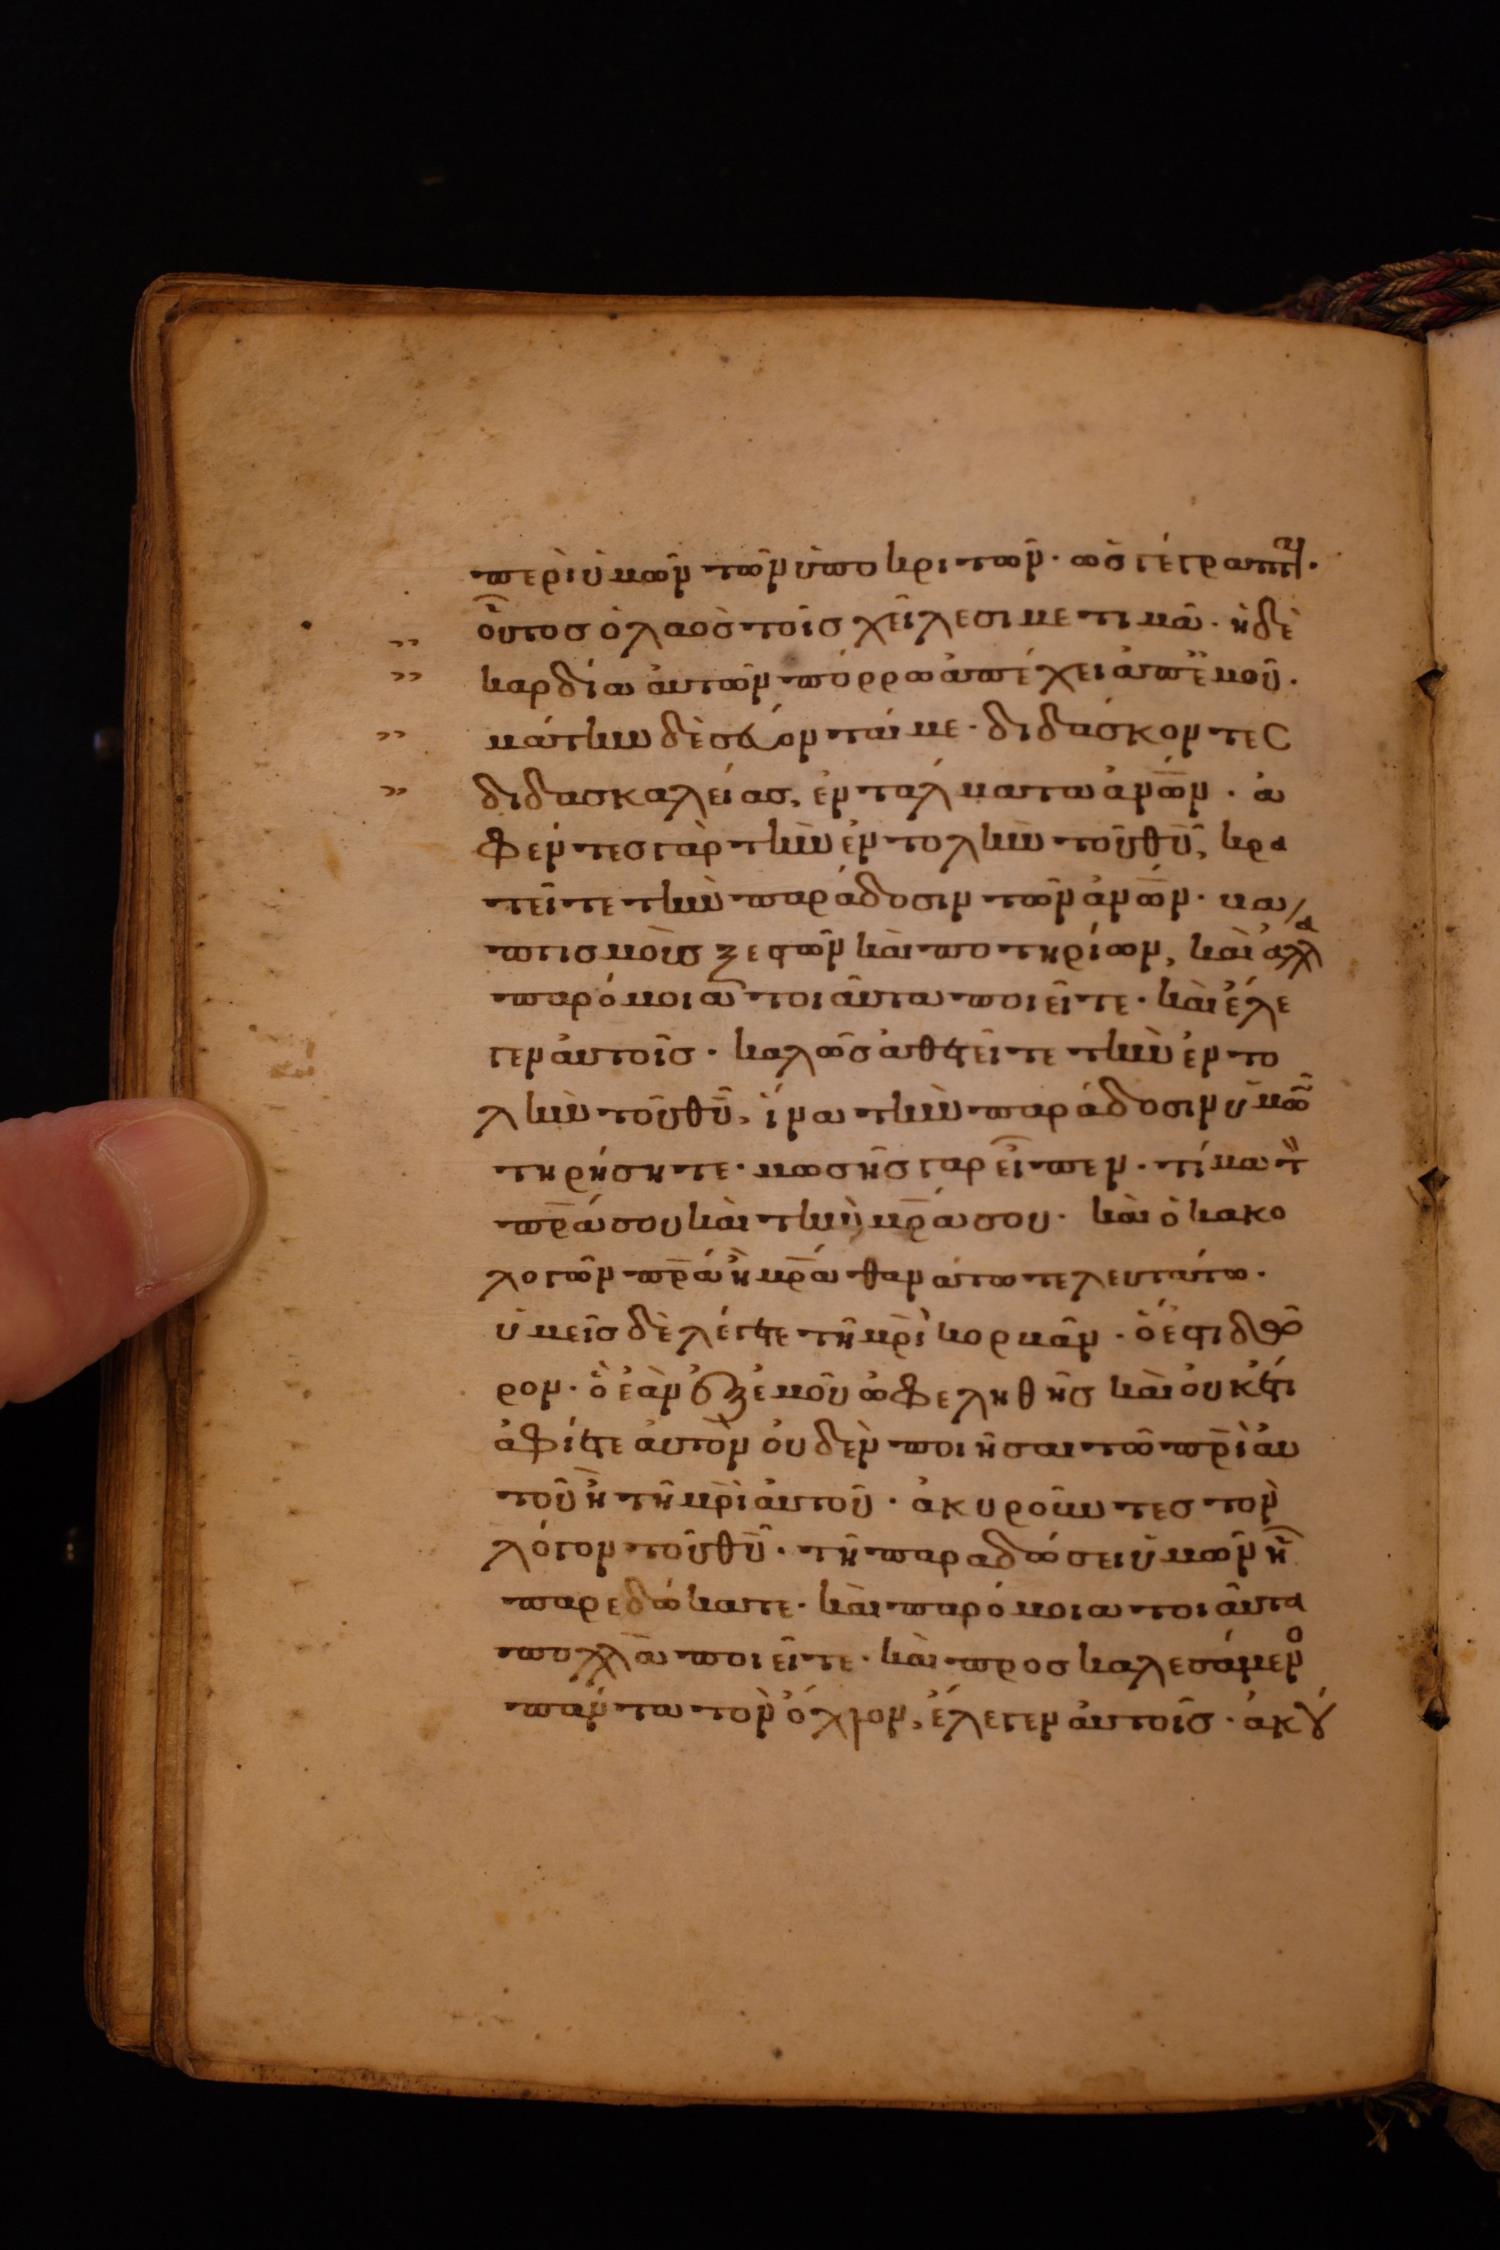 περὶ ὑμῶν τῶν ὑποκριτῶν· ὡς γέγραπται·
οὗτος ὁ λαὸς τοῖς χείλεσί με τιμᾶ· ἡ δὲ
καρδία αὐτῶν πόρρω ἀπέχει ἀπ' ἐμοῦ·
μάτην δὲ σέβονταί με· διδάσκοντες
διδασκαλείας, ἐντάλματα ἀν̅ω̅ν· ἀ
φέντες γὰρ τὴν ἐντολὴν τοῦ θ̅υ̅, κρα
τεῖτε τὴν παράδοσιν τῶν ἀν̅ω̅ν· κα
πτισμοὺς ξεστῶν καὶ ποτηρίων, καὶ ἄλλα
παρόμοια τοιαῦτα ποιεῖτε· καὶ ἔλε
γεν αὐτοῖς· καλῶς ἀθετεῖτε τὴν ἐντο
λὴν τοῦ θ̅υ̅, ἵνα τὴν παράδοσιν ὑμῶν
τηρήσητε· μωσῆς γὰρ εἶπεν· τίμα τὸν
π̅ρ̅α σου καὶ τὴν μ̅ρ̅α σου· καὶ ὁ κακο
λογῶν π̅ρ̅α ἢ μ̅ρ̅α θανάτω τελευτάτω·
ὑμεῖς δὲ λέγετε τῆ μ̅ρ̅ι κορμᾶν· ὅ ἐστι δῶ
ρον· ὃ ἐὰν ἐξ ἐμοῦ ὠφεληθῆς καὶ οὐκέτι
ἀφίετε αὐτὸν οὐδὲν ποιῆσαι τῶ π̅ρ̅ι αὐ
τοῦ ἢ τῆ μ̅ρ̅ι αὐτοῦ· ἀκυροῦντες τὸν
λόγον τοῦ θ̅υ̅· τῆ παραδώσει ὑμῶν ἧ
παρεδώκατε· καὶ παρόμοια τοιαῦτα
πολλὰ ποιεῖτε· καὶ προσκαλεσάμενος
πάντα τὸν ὄχλον, ἔλεγεν αὐτοῖς· ἀκού